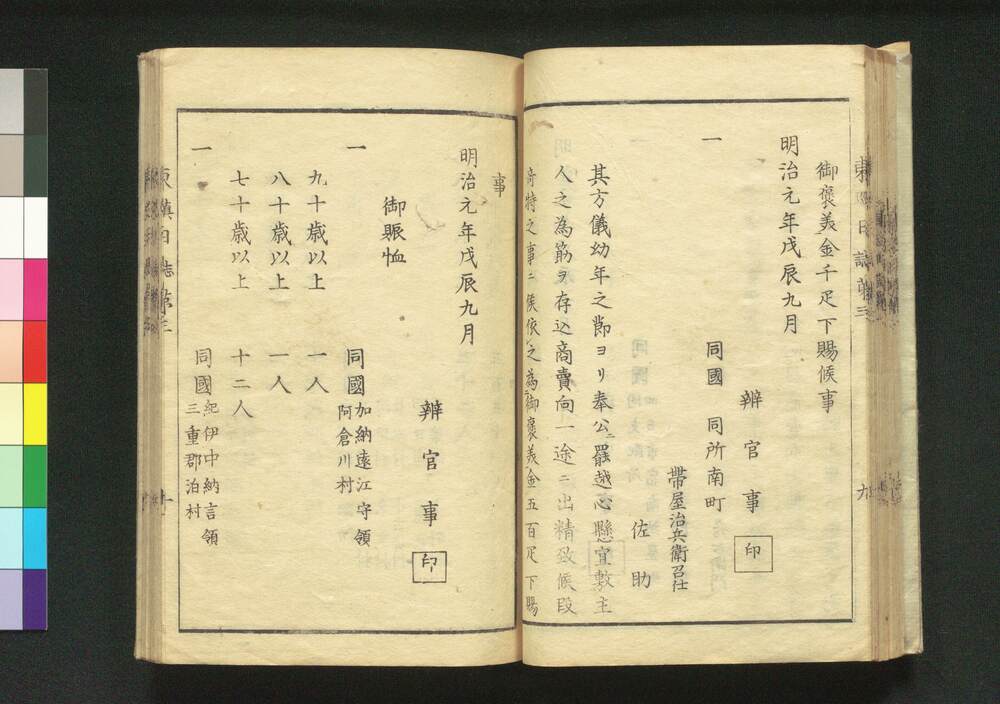 御褒美金千疋下賜候事
明治元年戊辰九月
辨官事 印
一 同國 同所南町
帶屋治兵衛召仕
佐助
其方儀幼年之節ヨリ奉公ニ罷越心懸宜敷主
人之為筋ヲ存込商賣向一途ニ出精致候段
奇特之事ニ候依之為御褒美金五百疋下賜
事
明治元年戊辰九月
辨官事 印
御賑恤
一 同國 加納遠江守領
阿倉川村
九十歳以上 一人
八十歳以上 一人
七十歳以上 十二人
一 同國 紀伊中納言領
三重郡泊村